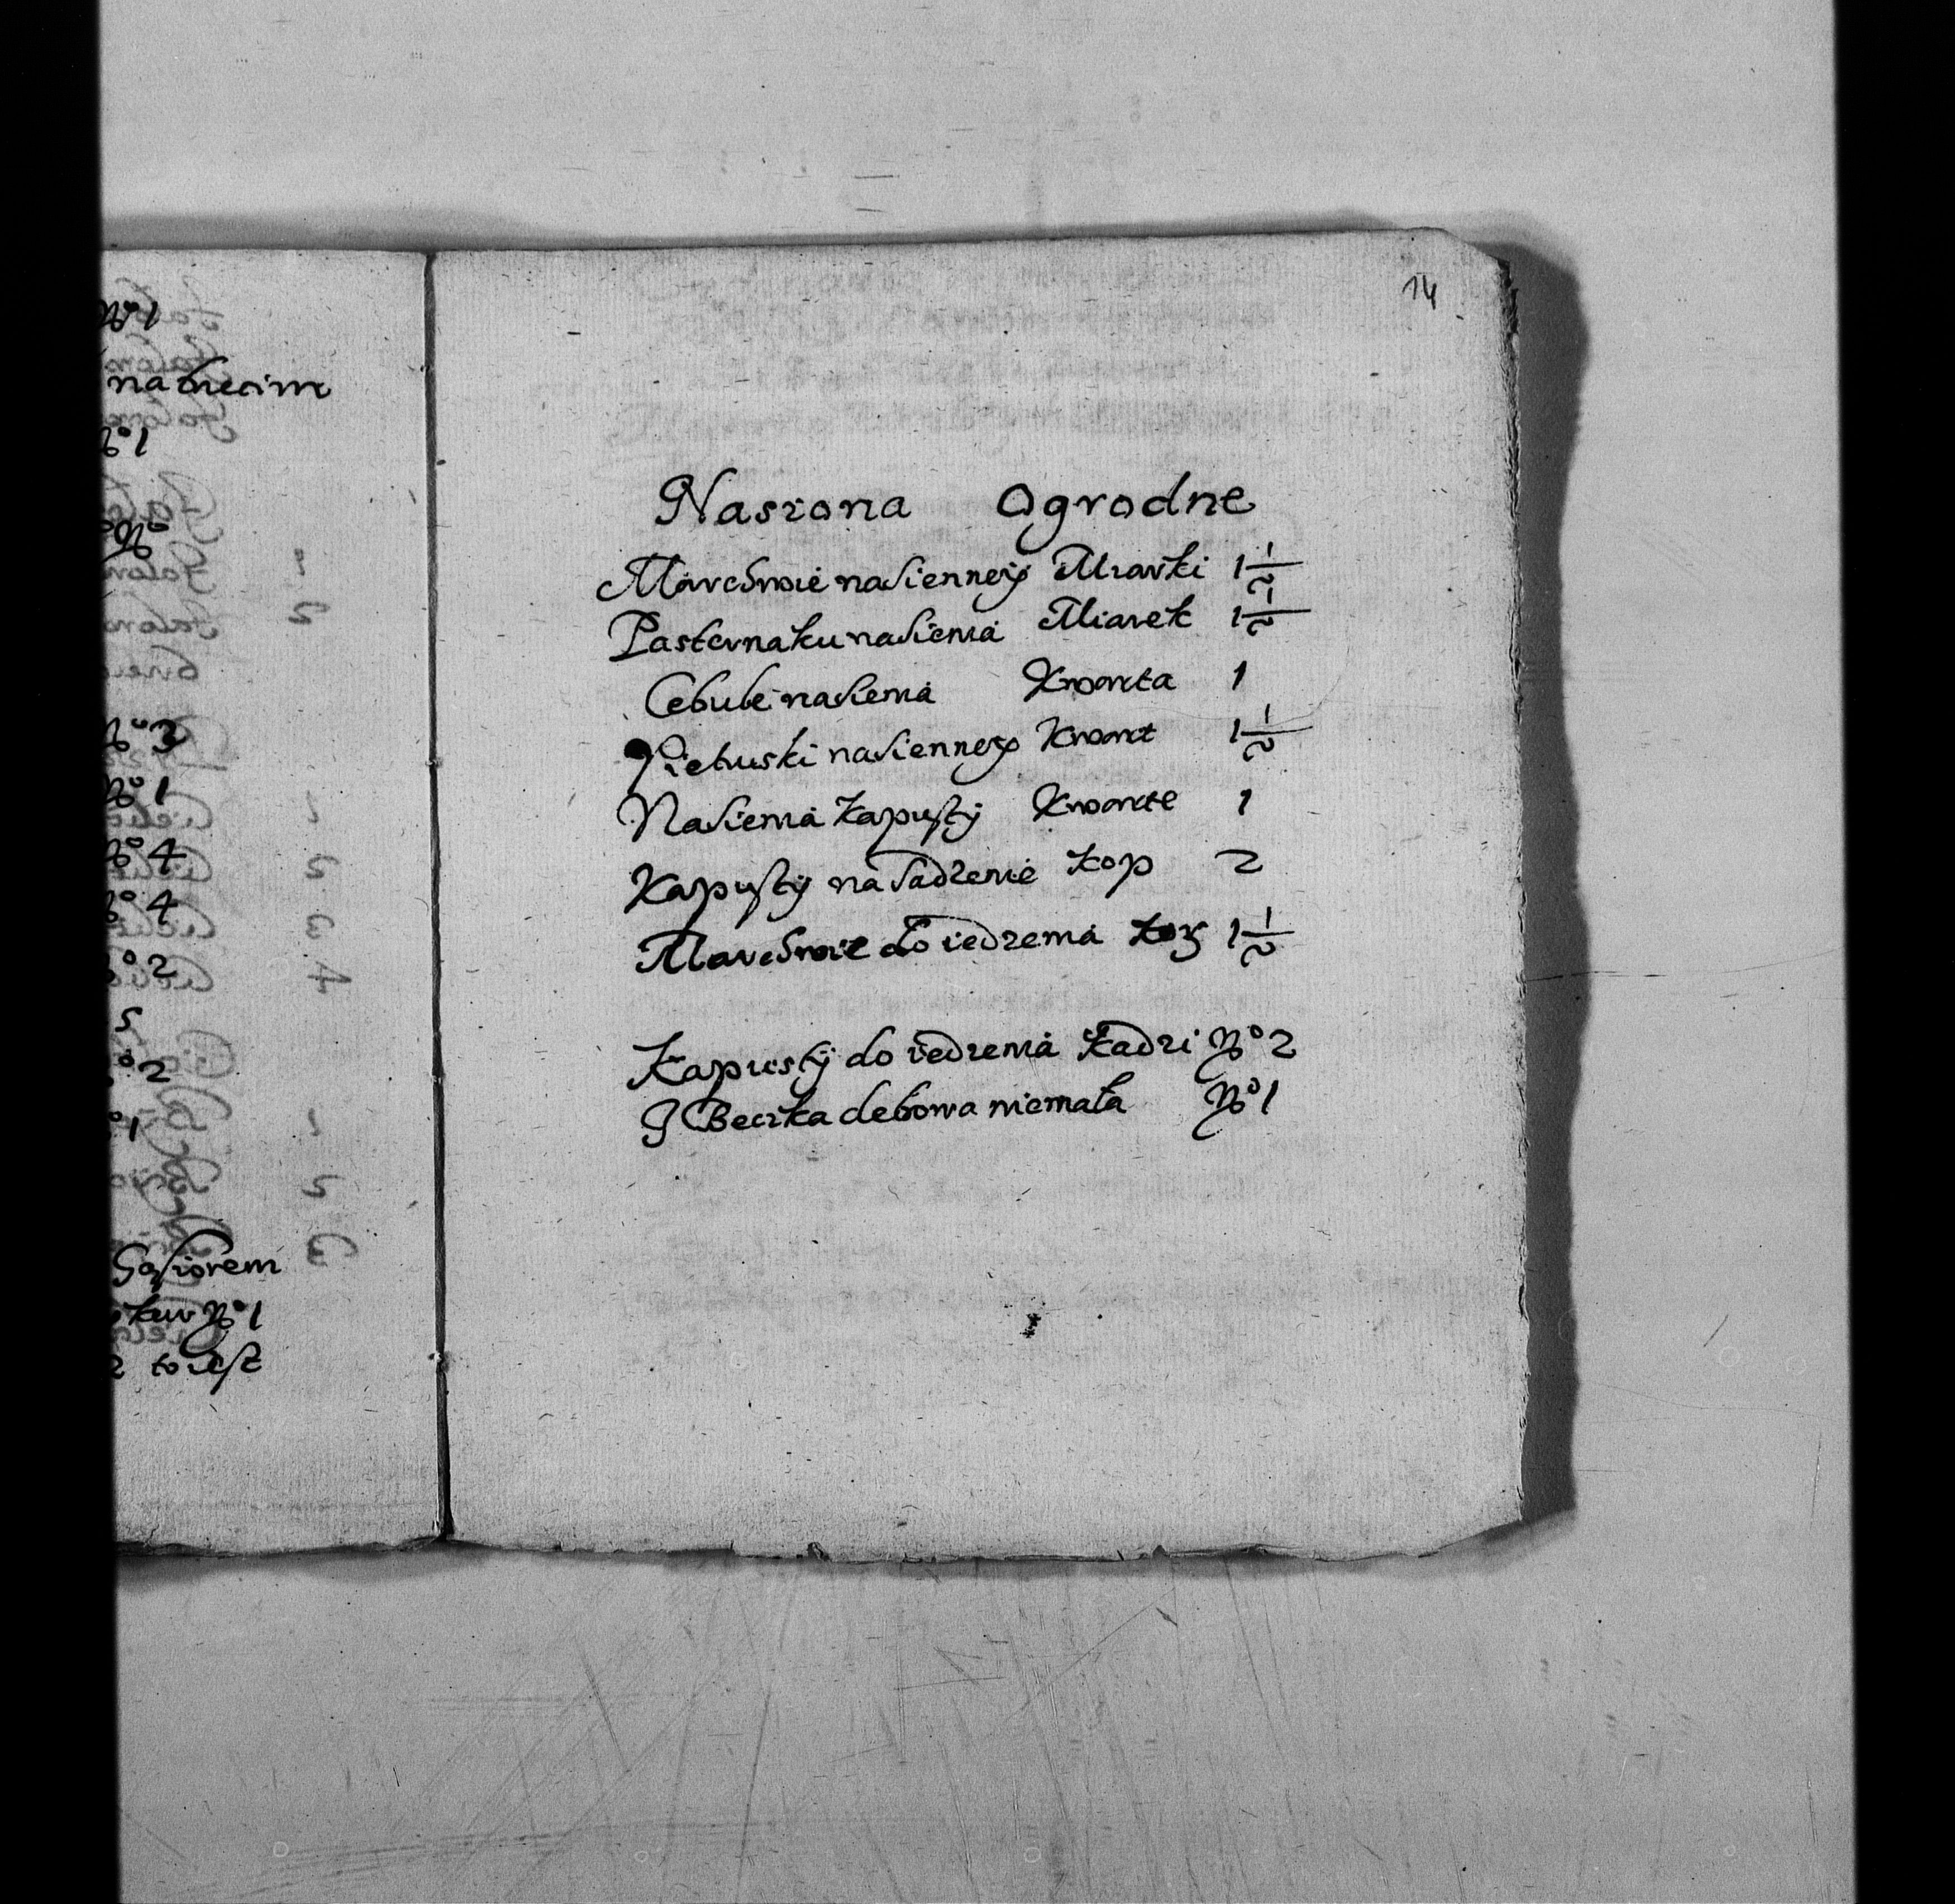 № 1
na trzecim
№ 1
№
№ 3
№ 1
№ 4
№ 4
№ 2
5
№ 2
№ 1
Gąsiorem
№ 1
2 to iest
14
Nasiona Ogrodne
Marchwie nasienney Miarki 1 1/2
Pasternaku nasienia Miarek 1 1/2
Cebule nasienia Kwarta 1
Pietruski nasienney Kwart 1 1/2
Nasienia kapusty Kwarte 1
Kapusty na sadzenie kop 2
Marchwie do iedzenia kop 1 1/2
Kapusty do iedzenia kadzi № 2
J Beczka debowa niemała № 1